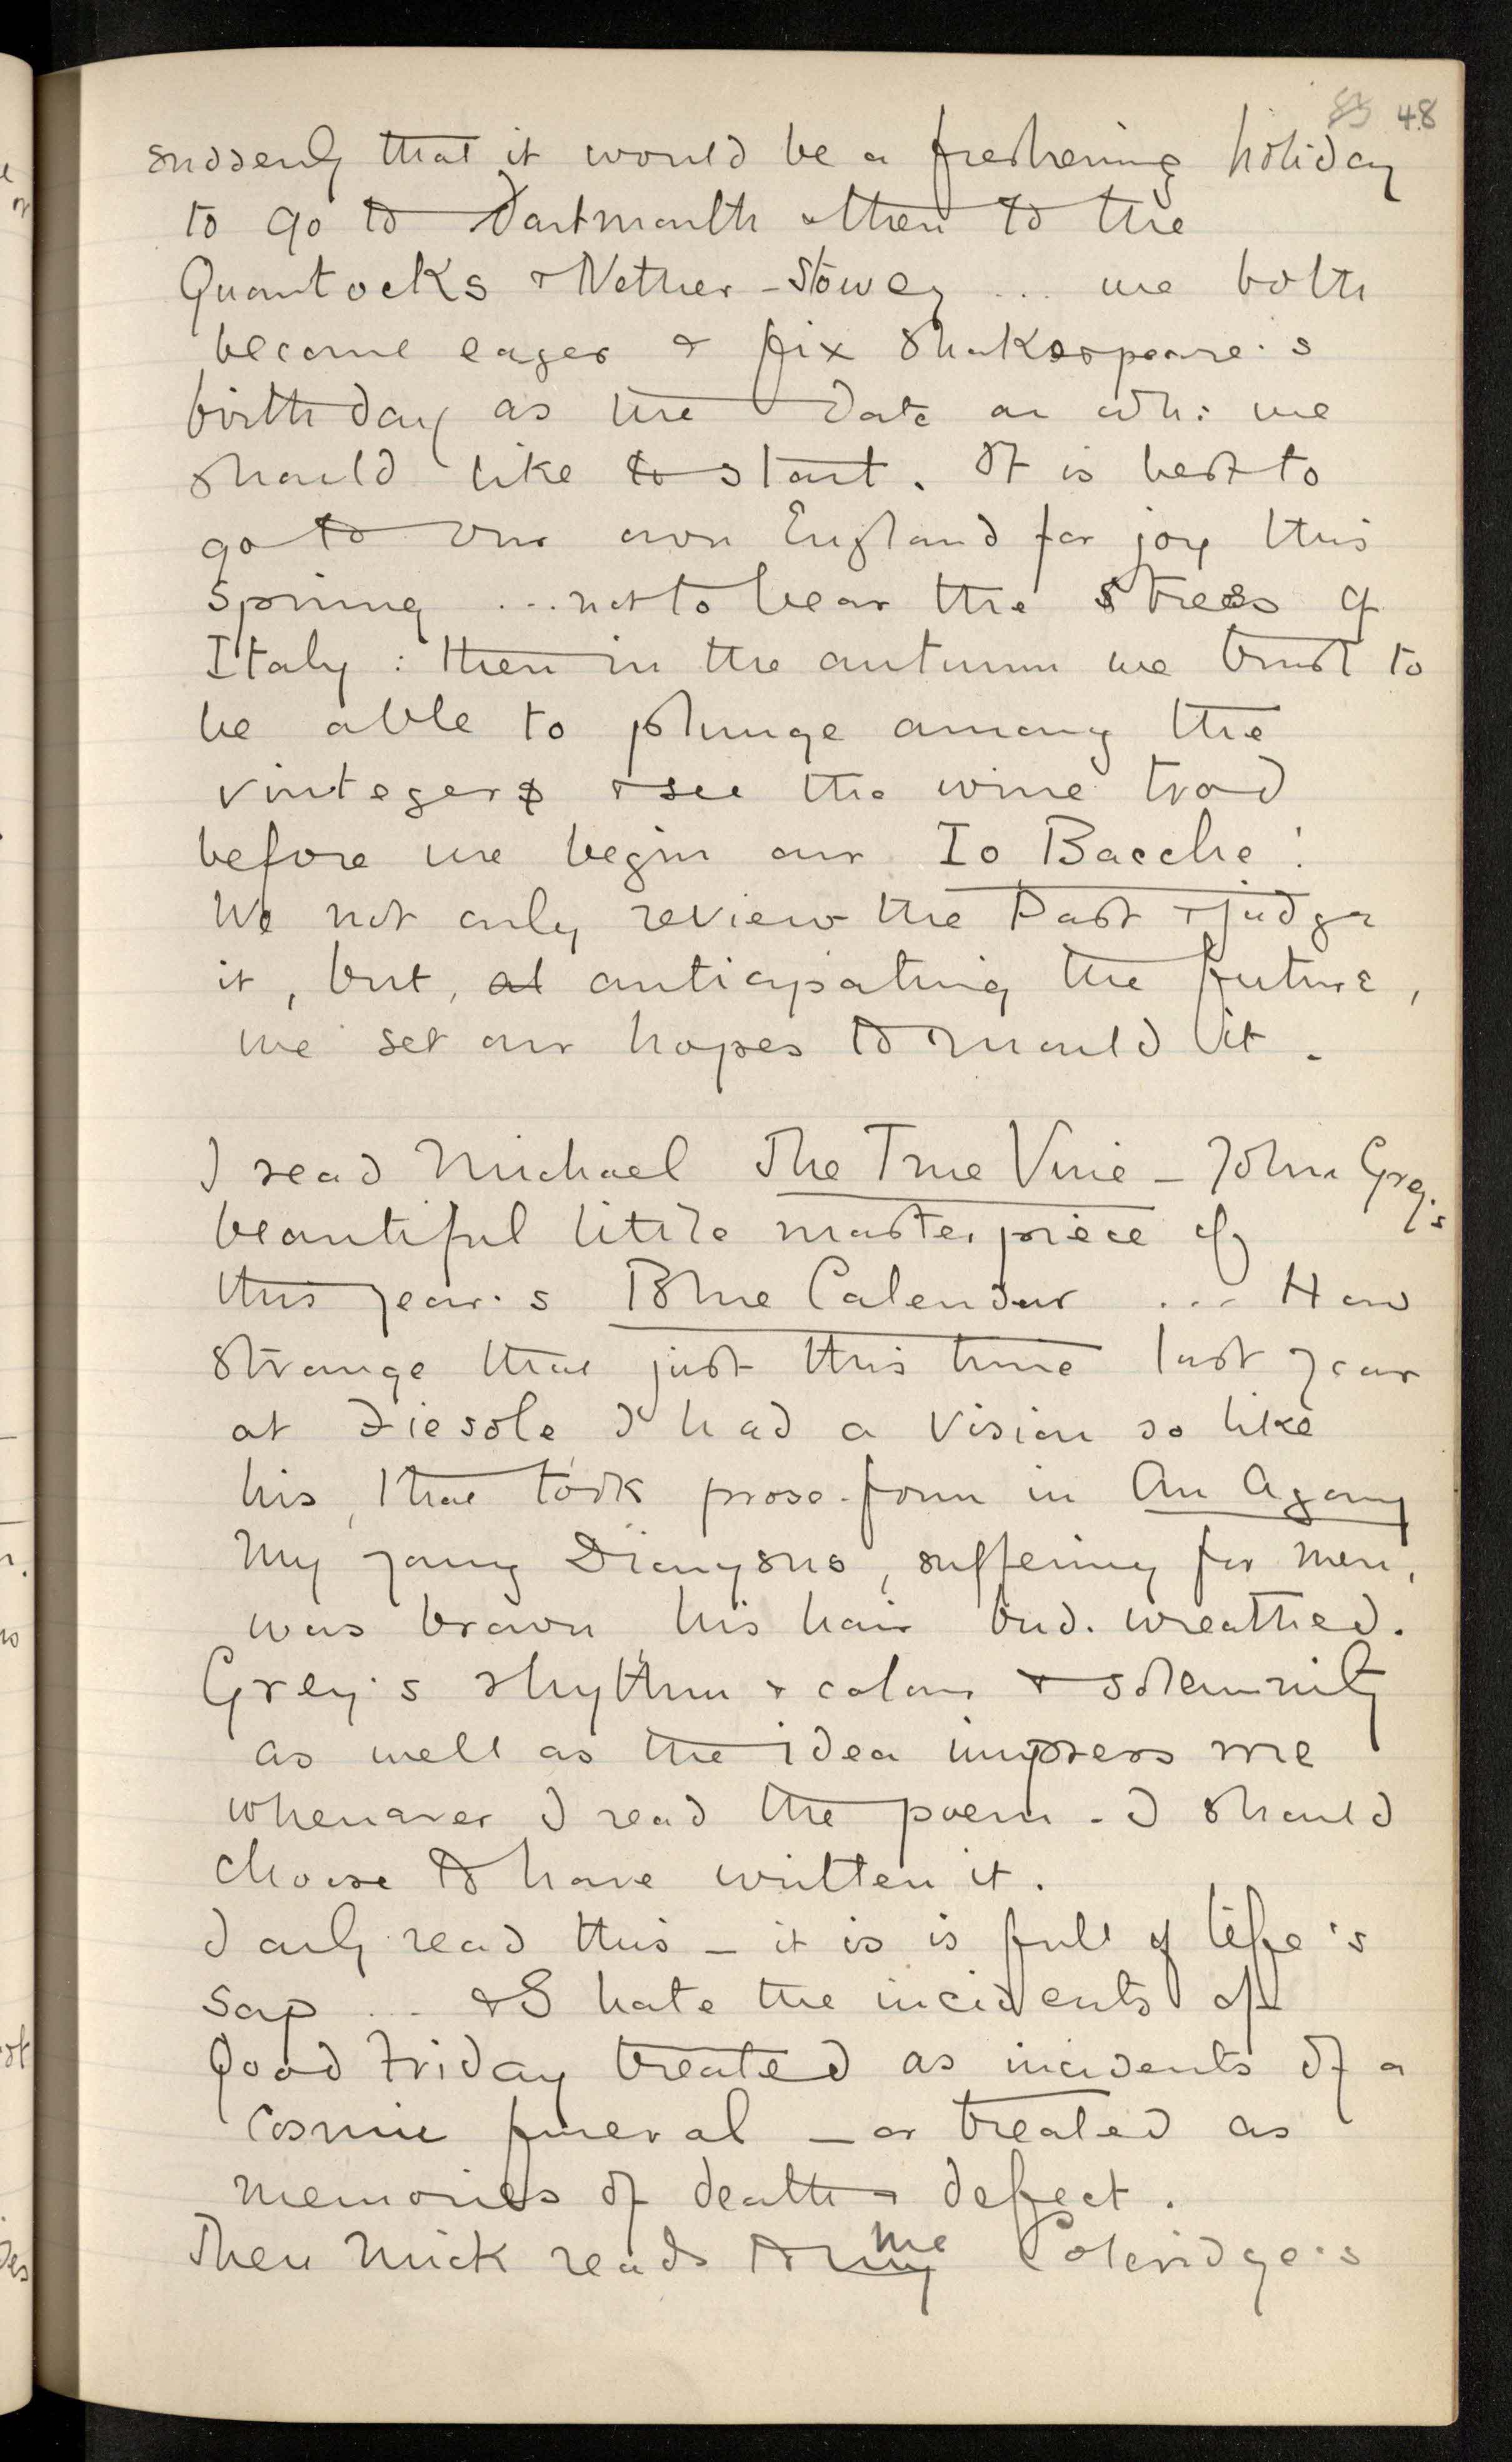 85 48
suddenly that it would be a freshening holiday
to go to Dartmouth & then to the
Quantocks & Nether-Stowey ... we both
become eager & fix Shakespeare's
birthday as the date on wh: we
should like to start. It is best to
go to our own England for joy this
spring ... not to bear the stress of
Italy : then in the autumn we trust to
be able to plunge among the
vintegers & see the wine trod
before we begin our Io Bacche!
We not only review the Past & judge
it, but, at anticipating the future,
we set our hopes to mould it.
I read Michael The True Vine - John Grey's
beautiful little masterpiece of
this year's Blue Calendar ... How
strange that just this time last year
at Fiesole I had a vision so like
his, that took prose-form in An Agony
My young Dionysus, suffering for men,
was brown, his hair bud-wreathed.
Grey's rhythm & colour & solemnity
as well as the idea impress me
whenever I read the poem - I should
choose to have written it.
I only read this - it is is full of life's
sap ... & I hate the incidents of
Good Friday treated as incidents of a
cosmic funeral - or treated as
memories of death & defect.
Then Mick reads to my me Coleridge's